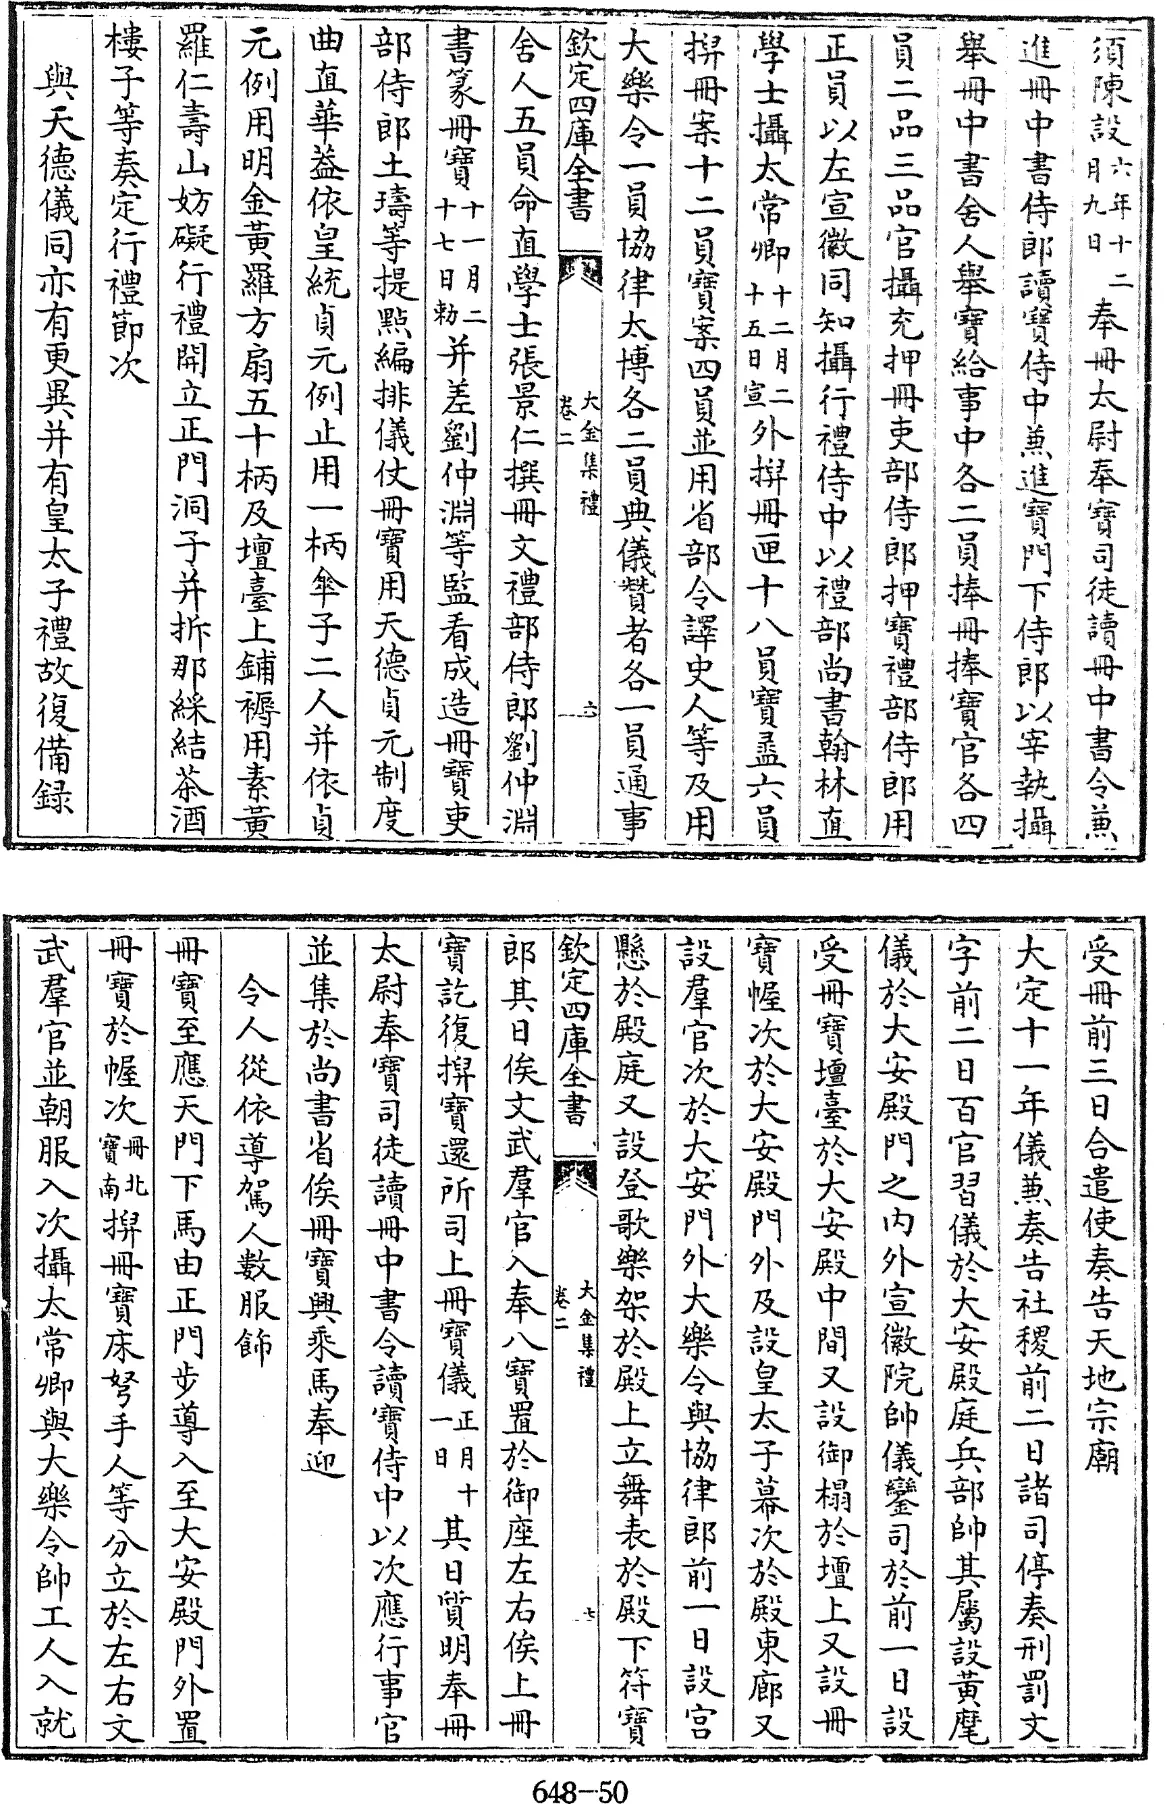 須陳設六年十二月九日奉冊太尉奉寶司徒讀冊中書令兼
進冊中書侍郎讀寶侍中兼進寶門下侍郎以宰執攝
舉冊中書舍人舉寶給事中各二員捧冊捧寶官各四
員二品三品官攝充押冊吏部侍郎押寶禮部侍郎用
正員以左宣徽同知攝行禮侍中以禮部尚書翰林直
學士攝太常卿十二月二十五日宣外捍冊匣十八員寶盝六員
捍冊案十二員寶案四員並用省部令譯史人等及用
大樂令一員協律太博各二員典儀贊者各一員通事
欽定四庫全書 大金集禮 卷二 六
舍人五員命直學士張景仁撰冊文禮部侍郎劉仲淵
書篆冊寶十一月二十七日勑并差劉仲淵等監看成造冊寶吏
部侍郎土璹等提點編排儀仗冊寶用天德貞元制度
曲直華蓋依皇統貞元例止用一柄傘子二人并依貞
元例用明金黃羅方扇五十柄及壇臺上鋪褥用素黃
羅仁壽山妨礙行禮開立正門洞子并拆那綵結茶酒
樓子等奏定行禮節次
與天德儀同亦有更異并有皇太子禮故復備録
受冊前三日合遣使奏告天地宗廟
大定十一年儀兼奏告社稷前二日諸司停奏刑罰文
字前二日百官習儀於大安殿庭兵部帥其屬設黃麾
儀於大安殿門之內外宣徽院帥儀鑾司於前一日設
受冊寶壇臺於大安殿中間又設御榻於壇上又設冊
寶幄次於大安殿門外及設皇太子幕次於殿東廊又
設羣官次於大安門外大樂令與協律郎前一日設宮
懸於殿庭又設登歌樂架於殿上立舞表於殿下符寶
欽定四庫全書 大金集禮 卷二 七
郎其日俟文武羣官入奉八寶置於御座左右俟上冊
寶訖復捍寶還所司上冊寶儀正月十一日其日質明奉冊
太尉奉寶司徒讀冊中書令讀寶侍中以次應行事官
並集於尚書省俟冊寶興乘馬奉迎
令人從依導駕人數服飾
冊寶至應天門下馬由正門步導入至大安殿門外置
冊寶於幄次冊北寶南捍冊寶床弩手人等分立於左右文
武羣官並朝服入次攝太常卿與大樂令帥工人入就
648-50